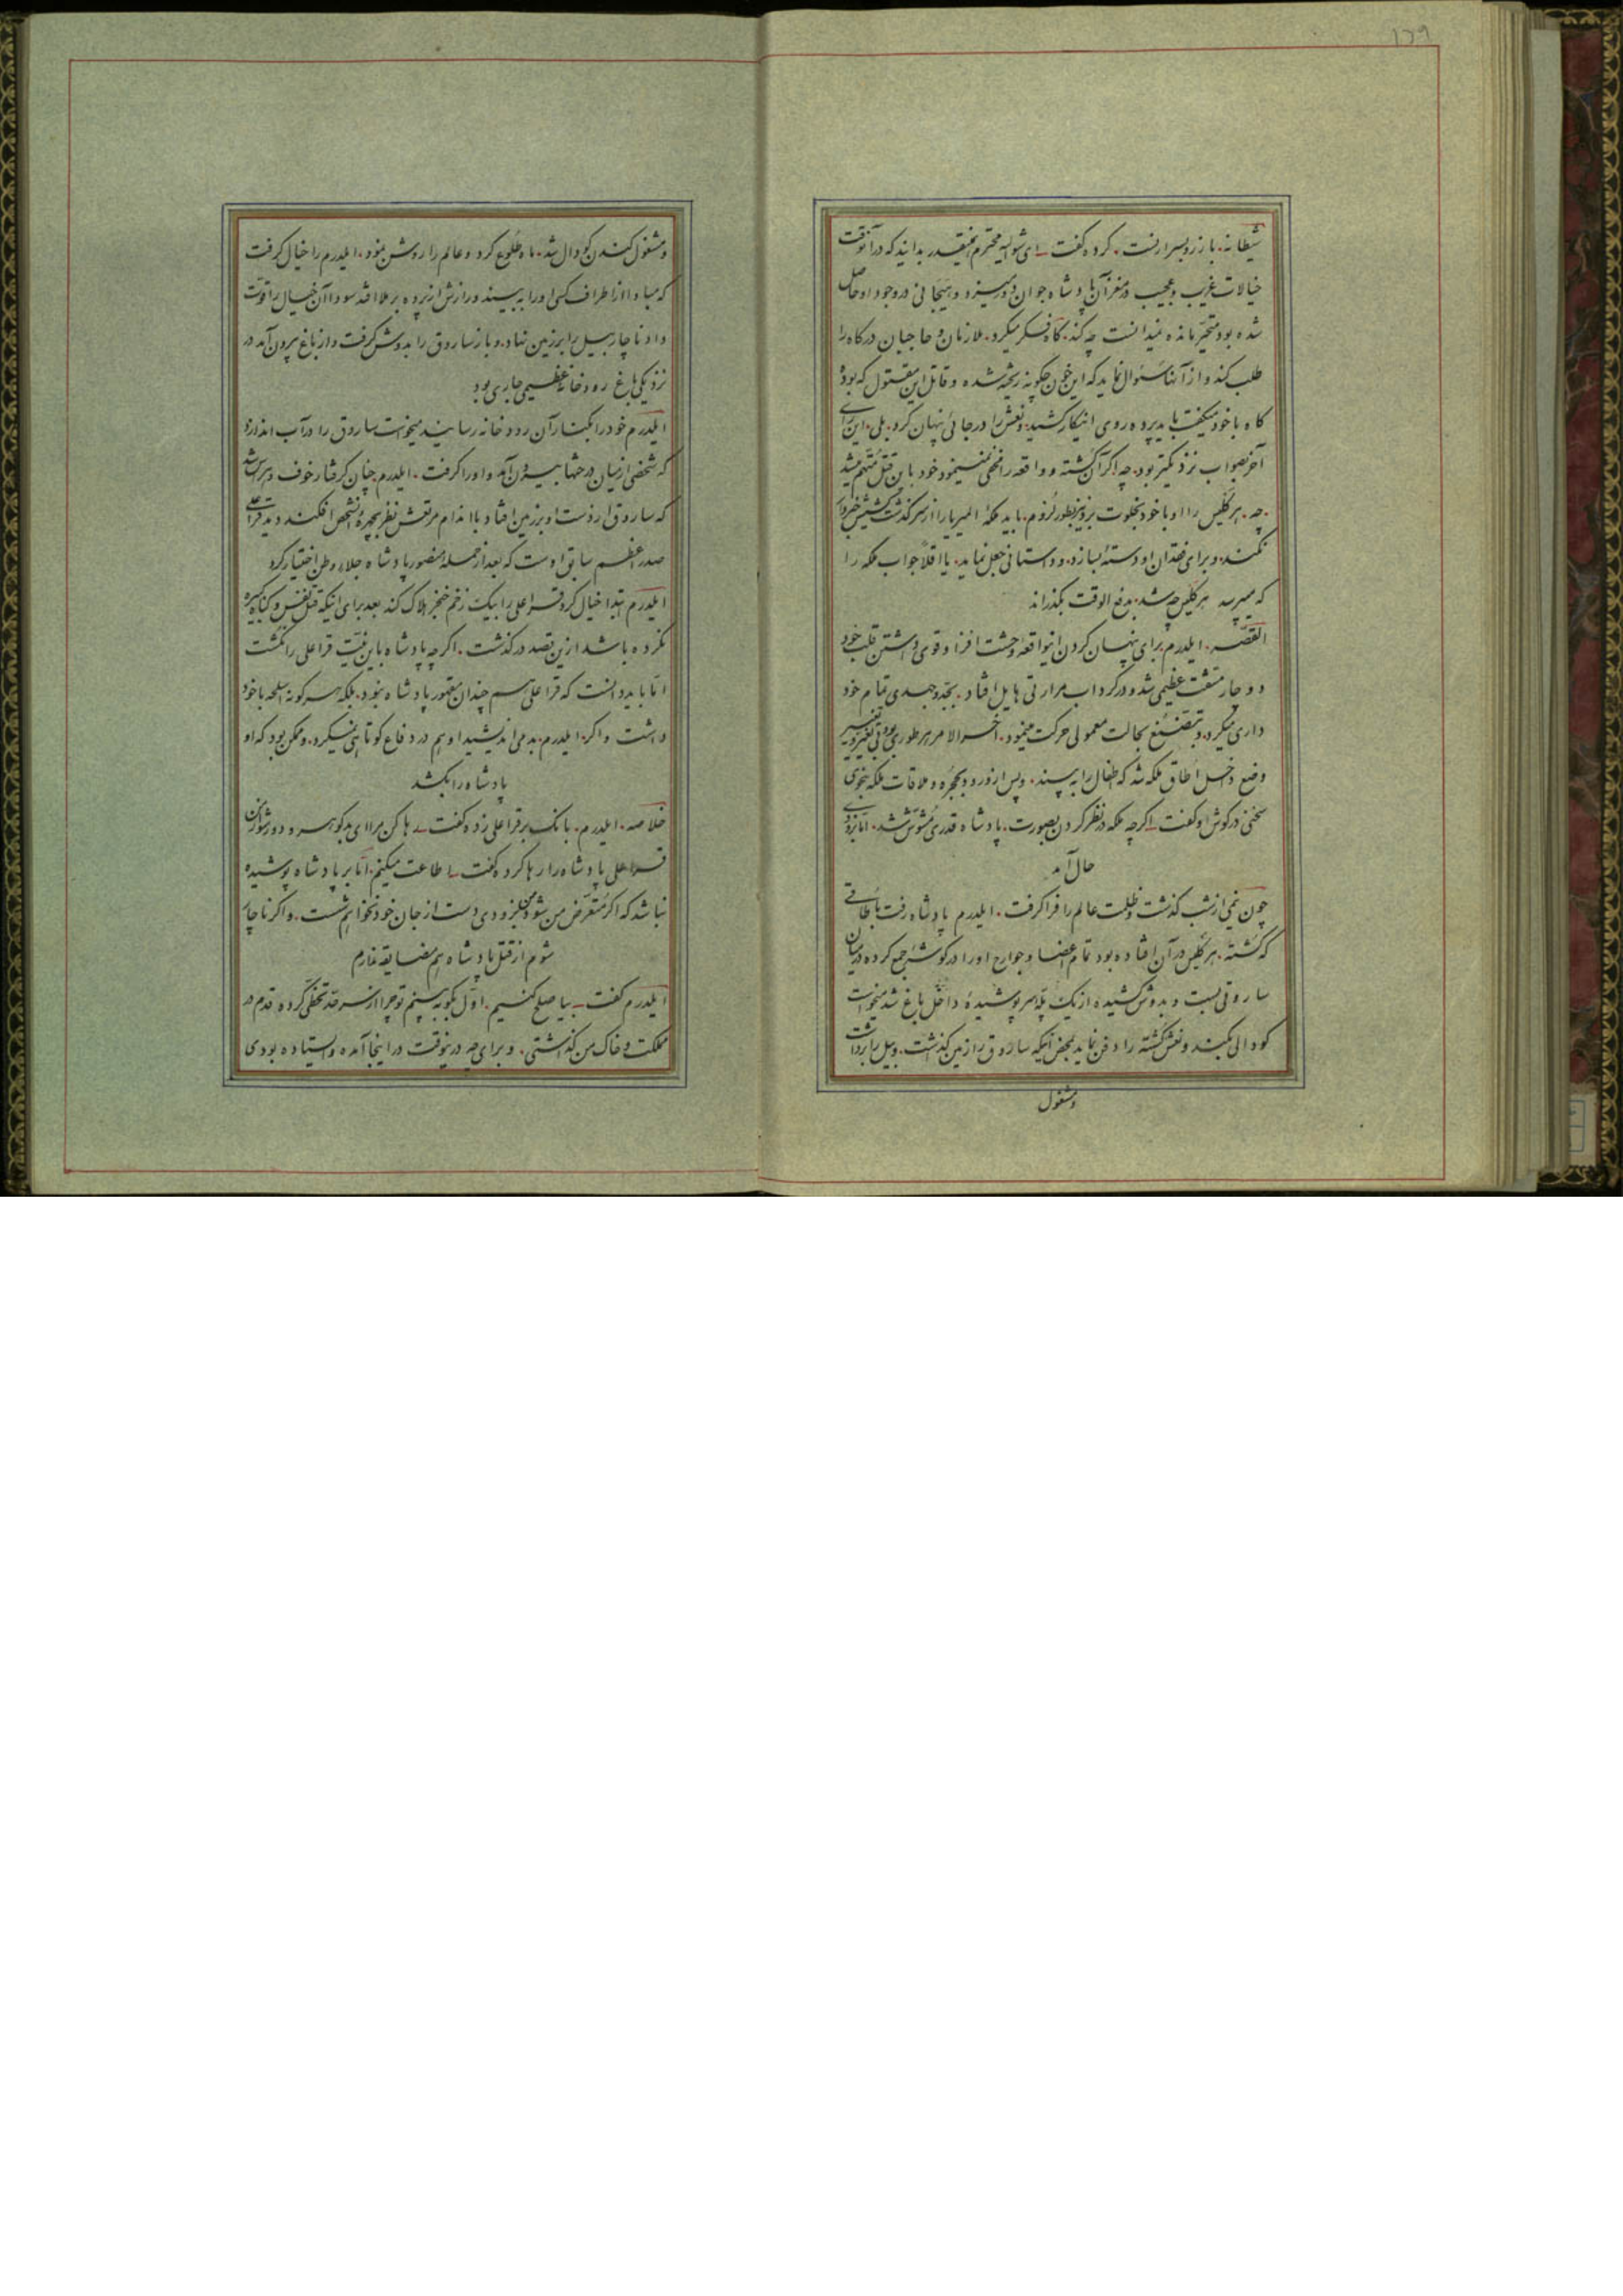 ۱۲۹
شیطانه. باز رو بسرارفت. کرده گفت ای شوالیه محترم اینقدر بدانید که در آنوقت
خیالات غریب و عجیب در مغز آن پادشاه جوان دور میزد و هیجانی در وجود او حاصل
شده بود متحیر مانده نمیدانست چه کند. گاه فکر میکرد. ملازمان و حاجبان درگاه را
طلب کند و از آنها سئوال نماید که این خون چگونه ریخته شده و قاتل این مقتول که بوده
گاه با خود میگفت باید پرده روی اینکار کشید. و نعش را در جائی پنهان کرد. بلی. این رای
آخر بصواب نزدیکتر بود. چه اگر آن کشته و واقعه را مخفی نمینمود خود بان قتل متهم میشد
چه. هرکلیس را او با خود بخلوت برده بطور لزوم. باید ملکه المیر یا را از سرگذشت کشیش خبردار
نکند. و برای فقدان او دسته بسازد. و داستانی جعل نماید. یا اقلاً جواب ملکه را
که میپرسد هرکلیس چه شد. بدفع الوقت بگذراند
القصه. ایلدرم برای پنهان کردن اینواقعه وحشت افزا و قوی داشتن قلب خود
دوچار مشقت عظیمی شد و در گرداب مرارتی هایل افتاد. بجد و جهدی تمام خود
داری میکرد. و بتصنع بحالت معمولی حرکت مینمود. آخرالامر هر طوری بود بی تغییر
وضع داخل اطاق ملکه شد که اطفال را به بیند. و پس از ورود بحجره و ملاقات ملکه بنجوی
سخنی در گوش او گفت اگرچه ملکه در نظر کردن بصورت. پادشاه قدری مشوش شد. اما بزودی
حال آمد
چون نیمی از شب گذشت و ظلمت عالم را فرا گرفت. ایلدرم پادشاه رفت باطاقی
که کشته. هرکلیس در آن افتاده بود تمام اعضا و جوارح او را در گوشه جمع کرده در میان
ساروقی بست و بدوش کشیده از یک پله سر پوشیده داخل باغ شد میخواست
گودالی بکند و نعش کشته را دفن نماید بمحض اینکه ساروق را زمین گذاشت. و بیل را برداشت
و مشغول
و مشغول کندن گودال شد. ماه طلوع کرد و عالم را روشن نمود. ایلدرم را خیال گرفت
که مبادا از اطراف کسی او را به بیند و رازش از پرده بر ملا افتد سودا آن خیال را قوت
داد ناچار بیل را بر زمین نهاد. و باز ساروق را بدوش گرفت و از باغ بیرون آمد در
نزدیکی باغ رودخانه عظیمی جاری بود
ایلدرم خود را بکنار آن رودخانه رسانید میخواست ساروق را در آب اندازد
که شخصی از میان درختها بیرون آمد و او را گرفت. ایلدرم چنان گرفتار خوف و هراس شد
که ساروق از دست او بر زمین افتاد با اندام مرتعش نظر بچهره آنشخص افکند دید قراعلی
صدر اعظم سابق اوست که بعد از حمله منصور پادشاه جلاء وطن اختیار کرد
ایلدرم ابتدا خیال کرد قراعلی را بیک زخم خنجر هلاک کند بعد برای اینکه قتل نفس و گناه کبیره
نکرده باشد ازین قصد درگذشت. اگرچه پادشاه باین نیت قراعلی را نکشت
اما باید دانست که قراعلی هم چندان مقهور پادشاه نبود. بلکه هر گونه اسلحه با خود
داشت و اگر. ایلدرم. بد می اندیشید او هم در دفاع کوتاهی نمیکرد. و ممکن بود که او
پادشاه را بکشد
خلاصه. ایلدرم. بانک بر قراعلی زده گفت رها کن مرا ای بدگوهر و دور شو از من
قراعلی پادشاه را رها کرده گفت اطاعت میکنم. اما بر پادشاه پوشیده
نباشد که اگر متعرض من شود بزودی دست از جان خود نخواهم شست. و اگر ناچار
شوم از قتل پادشاه هم مضایقه ندارم
ایلدرم گفت بیا صلح کنیم. اول بگو به بینم تو چرا از سرحد تخطی کرده قدم در
مملکت و خاک من گذاشتی. و برای چه درینوقت در اینجا آمده و ایستاده بودی